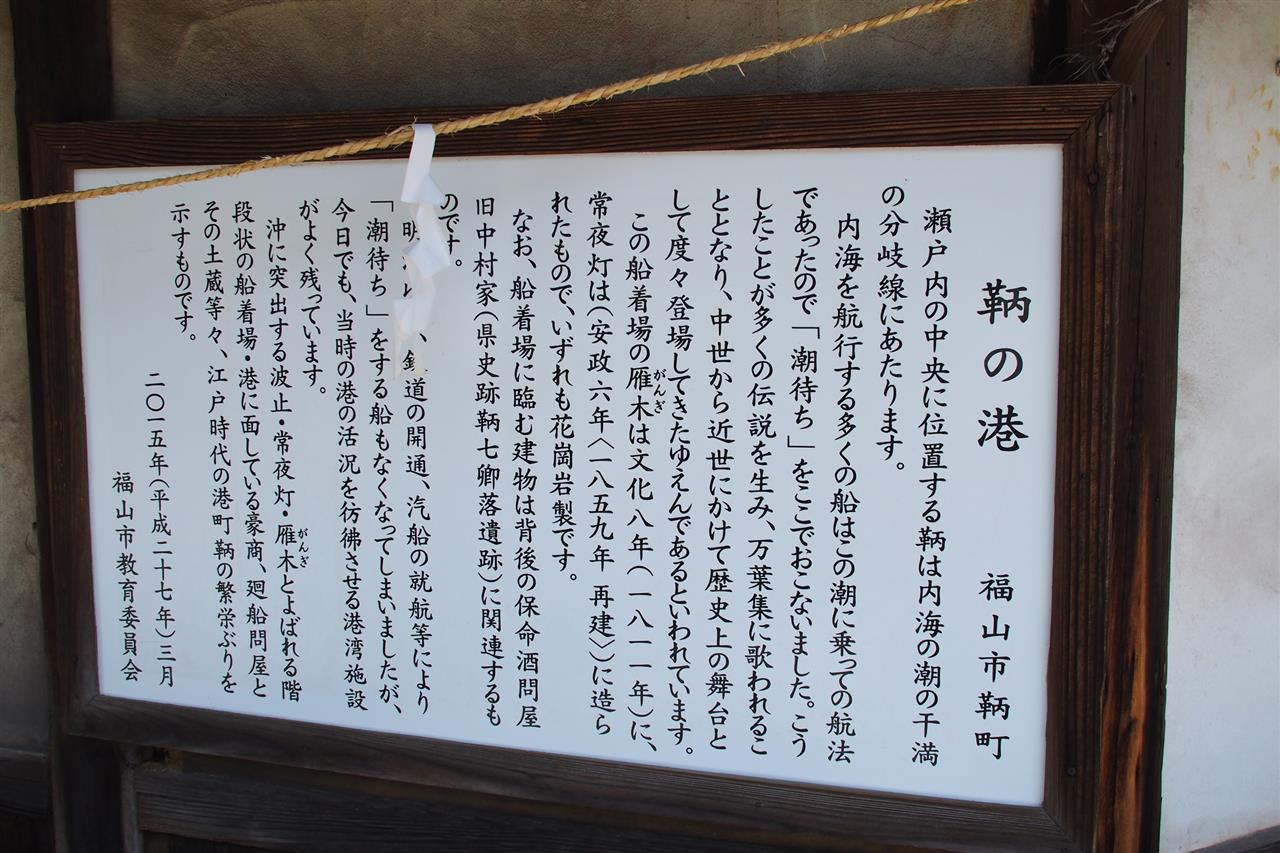 鞆の港　福山市鞆町
瀬戸内の中央に位置する鞆は内海の潮の干満
の分岐線にあたります。
内海を航行する多くの船はこの潮に乗っての航法
であったので「潮待ち」をここでおこないました。こう
したことが多くの伝説を生み、万葉集に歌われるこ
ととなり、中世から近世にかけて歴史上の舞台と
して度々登場してきたゆえんであるといわれています。
この船着場の雁木がんぎは文化八年(一八一一年)に、
常夜灯は(安政六年〈一八五九年 再建〉)に造ら
れたもので、いずれも花崗岩製です。
なお、船着場に臨む建物は背後の保命酒問屋
旧中村家(県史跡鞆七卿落遺跡)に関連するも
のです。
明、鉄道の開通、汽船の就航等により
「潮待ち」をする船もなくなってしまいましたが、
今日でも、当時の港の活況を彷彿させる港湾施設
がよく残っています。
沖に突出する波止・常夜灯・雁木がんぎとよばれる階
段状の船着場・港に面している豪商、廻船問屋と
その土蔵等々、江戸時代の港町鞆の繁栄ぶりを
示すものです。
二〇一五年(平成二十七年)三月
福山市教育委員会